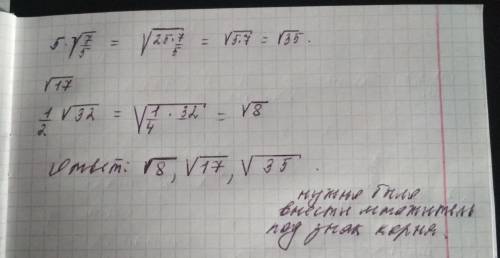 5·√7/5 = √25·7/5 = √5·7 = √35.
√17
1/2 √32 = √1/4 · 32 = √8
Ответ: √8, √17, √35.
нужно было
внести множитель
под знак корня.